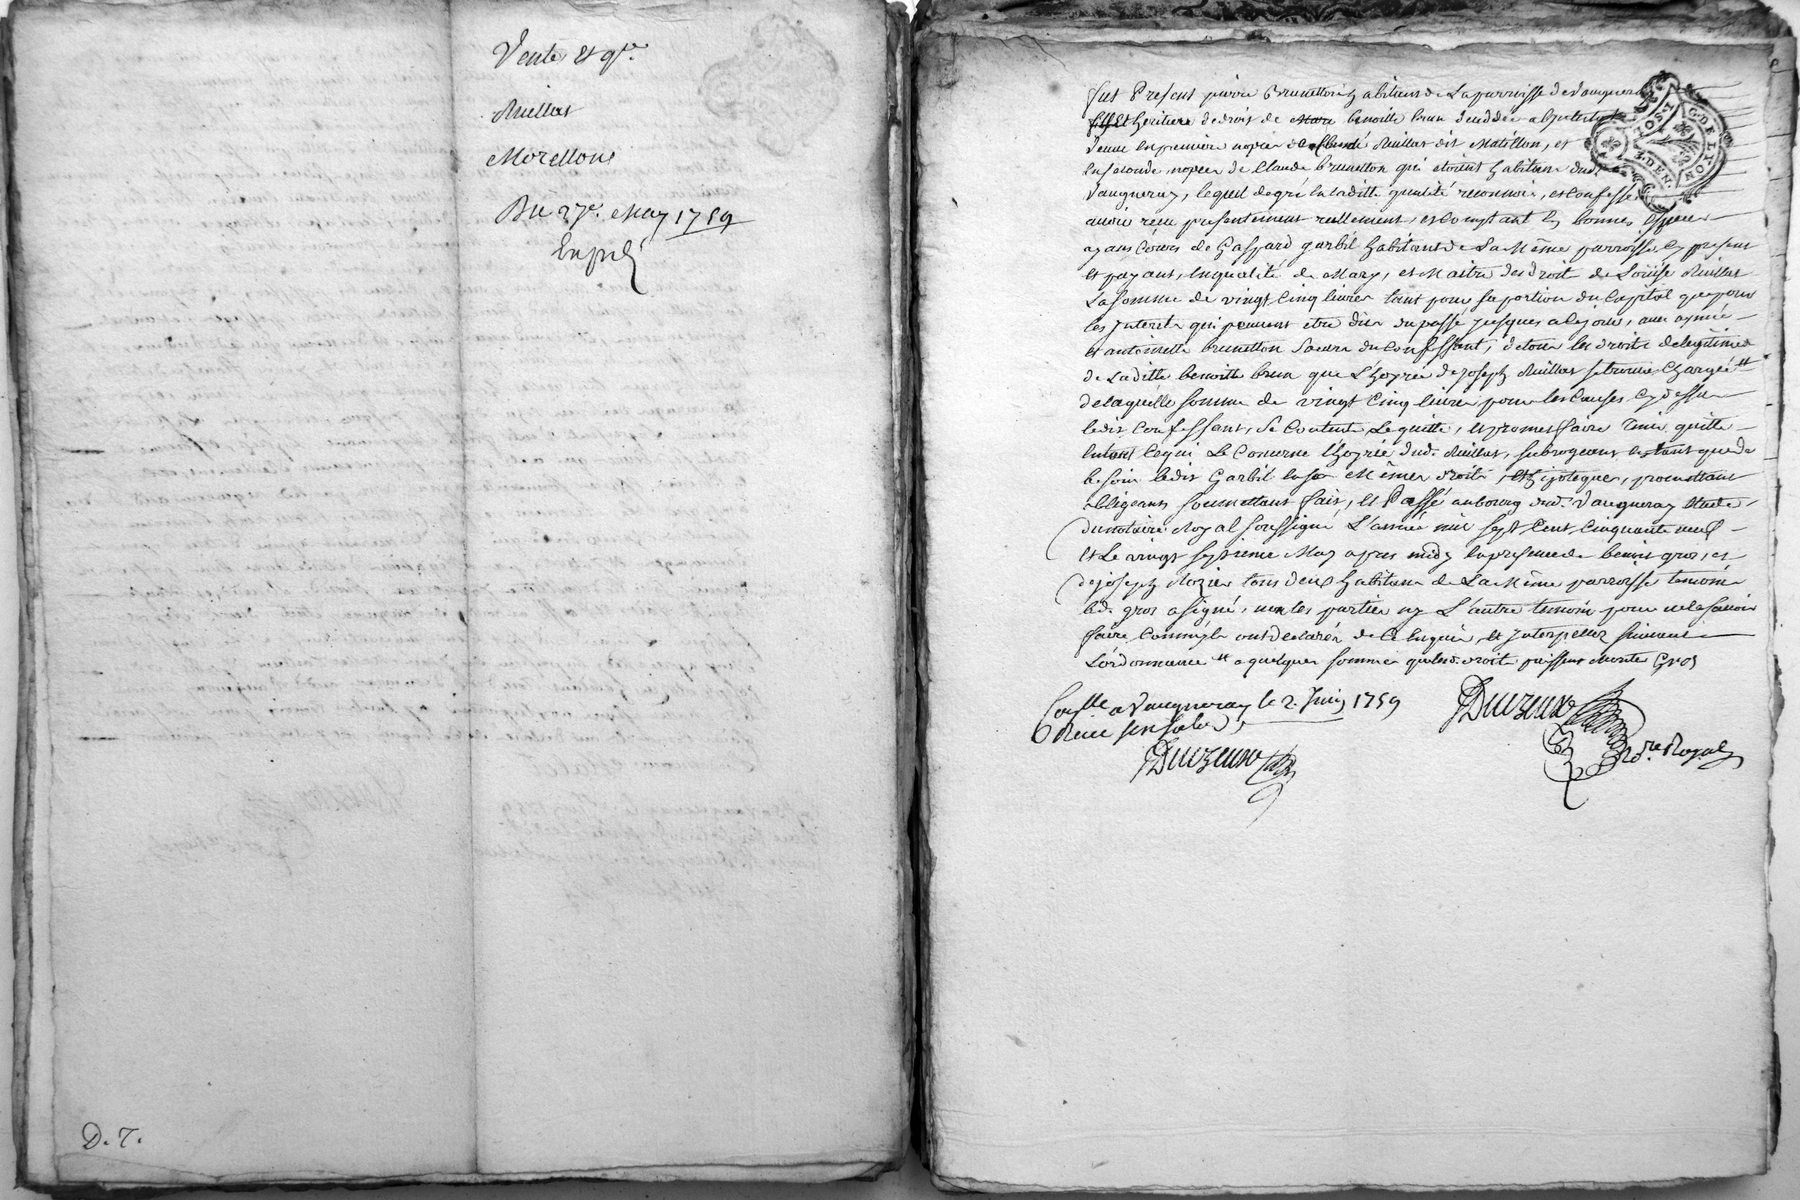 Vente et q.ce
Nuillas
Morellons
Du 27e. May 1759
Exped
D. T.
G. DE LYON
I. SOL
Z. DEN.
fut Present pierre Brunetton habitant de La parroisse de Vaugneray
et heritiere de droit de benoitte brun
veuve en premiere nopces de Claude Nuillas dit Matillon, et
en seconde nopces de Claude brunetton qui etoient habitans dud.
Vaugneray, lequel de gré en laditte qualité reconnoit, et confesse
avoir reçu presentement reellement, et Comptant En bonnes Especes
ayans Cours de Gaspard garbil habitant de La Même parroisse Cy present
et payant, En qualité de Mary, et Maitre des droit de Loüise Nuillas
La somme de vingt Cinq livres tant pour sa portion du Capital que pour
les Interets qui peuvent etre dus du passé jusques a ce jour, avec aymée
et antoinette brunetton soeurs du Confessant, de tous les droits de legitimes
de Laditte benoitte brun que L'hoyrie de joseph Nuillas se trouve Chargée
de laquelle somme de vingt Cinq livres pour les Causes Cy dessus
ledit Confessant, se Contente, Le quitte, et promet faire tenir quitte
Envers Ceux qui Le Concerne L'hoyrie dud. Nuillas, subrogeant En tant que de
besoin ledit Garbil en ses Mêmes droits, et hipoteques, promettant
obligeant soumettant fait, Et Passé au bourg dud. Vaugneray Etude
du notaire Royal soussigné L'année mil sept Cent Cinquante neuf
Et Le vingt septieme May apres midy En presence de benoit gros, et
de joseph Rozier tous deux habitans de La Même parroisse temoins
led. gros a signé, non les parties ny L'autre temoin pour ne le savoir
faire Comm'ils ont declarés de Ce Enquis, et Interpellez suivant
L'ordonnance a quelque somme que lesd. droits puissent Monter Gros
Conlle a Vaugneray le 2. Juin 1759
Reçu
Duczeux
Duczeux
No.re Royal